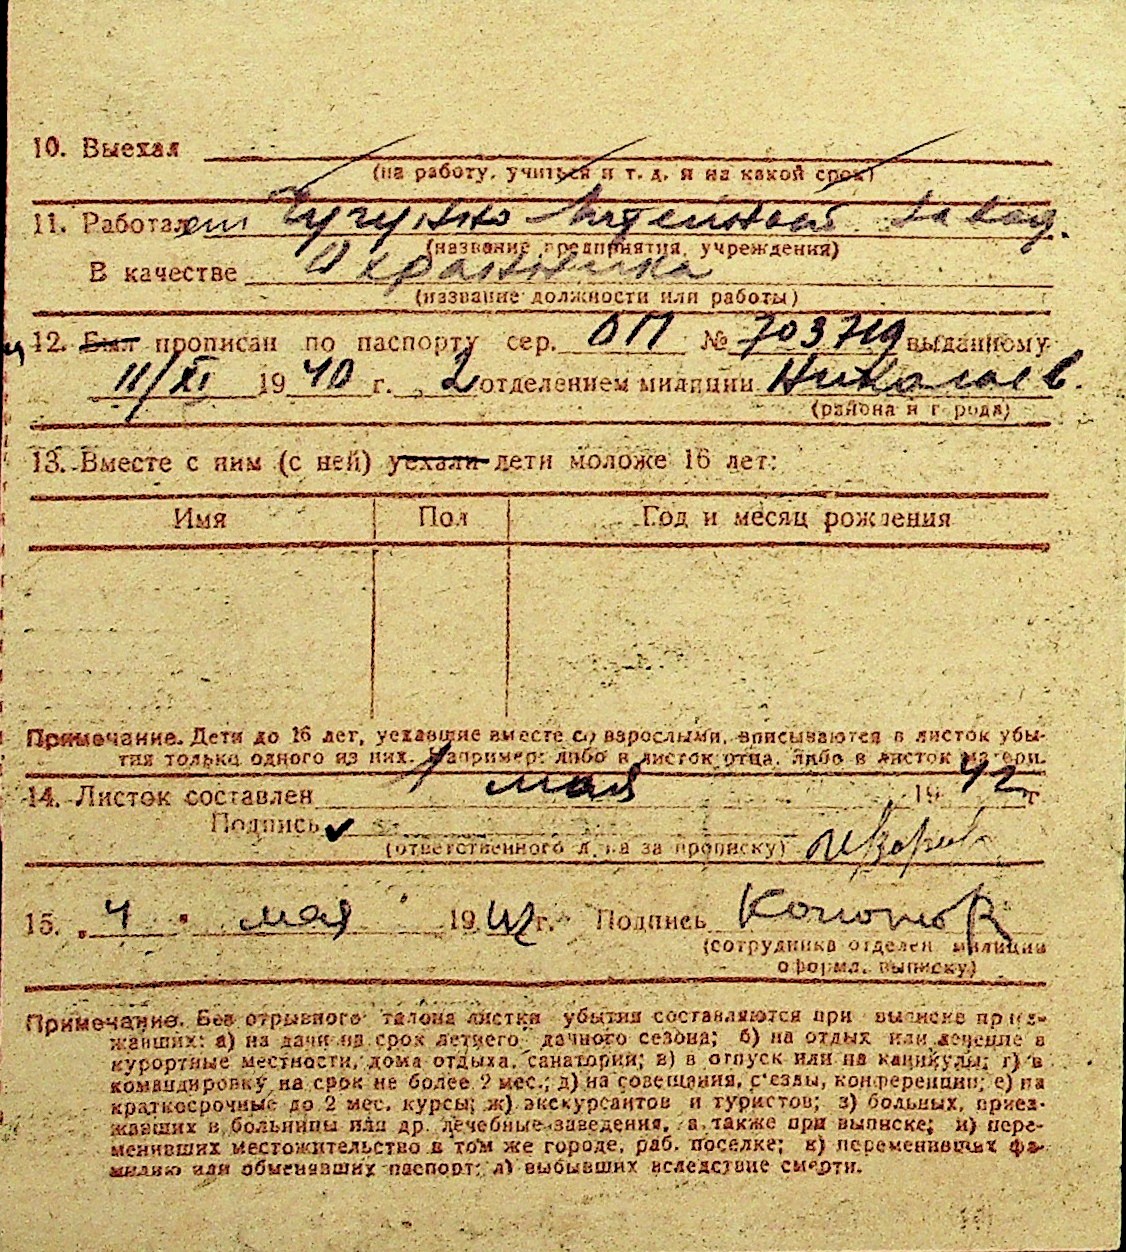 10. Выехал
(на работу, учиться и т. д. и на какой срок)
11. Работает Чугунно Литейный завод.
(название предприятия, учреждения)
В качестве Охранника
(название должности или работы)
и 12. Был прописан по паспорту сер. ОП № 703719 выданному
11/XI 1940 г. 2 отделением милиции Николаев.
(района и города)
13. Вместе с ним (с ней) уехали дети моложе 16 лет:
Имя Пол Год и месяц рождения
Примечание. Дети до 16 лет, уехавшие вместе со взрослыми, вписываются в листок убы-
тия только одного из них. Например: либо в листок отца, либо в листок матери.
14. Листок составлен 1 мая 1942 г
Подпись
(ответственного лица за прописку)
15. 4 мая 1942 г. Подпись
(сотрудника отделен. милиции
оформл. выписку)
Примечание. Без отрывного талона листки убытия составляются при выписке приез-
жавших: а) на дачи на срок летнего дачного сезона; б) на отдых или лечение в
курортные местности, дома отдыха, санатории; в) в отпуск или на каникулы; г) в
командировку на срок не более 2 мес.; д) на совещания, съезды, конференции; е) на
краткосрочные до 2 мес. курсы; ж) экскурсантов и туристов; з) больных, приез-
жавших в больницы или др. лечебные заведения, а также при выписке; и) пере-
менивших местожительство в том же городе, раб. поселке; к) переменивших фа-
милию или обменявших паспорт; л) выбывших вследствие смерти.